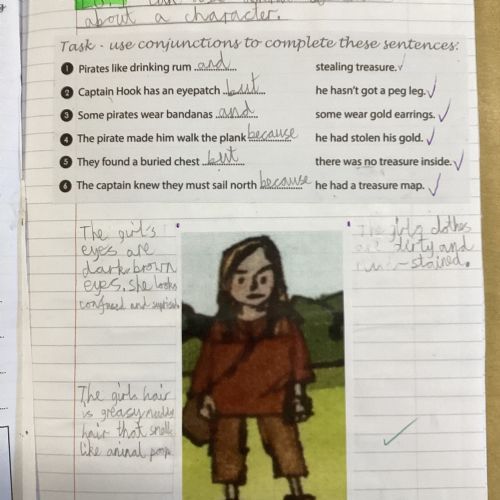 about a character.
Task - use conjunctions to complete these sentences:
1 Pirates like drinking rum and stealing treasure.
2 Captain Hook has an eyepatch but he hasn't got a peg leg.
3 Some pirates wear bandanas and some wear gold earrings.
4 The pirate made him walk the plank because he had stolen his gold.
5 They found a buried chest but there was no treasure inside.
6 The captain knew they must sail north because he had a treasure map.
The girl's
eyes are
dark brown
eyes. She looks
confused and
The girls clothes
dirty and
stained.
The girls hair
is greasy
hair that smells
like animal poop